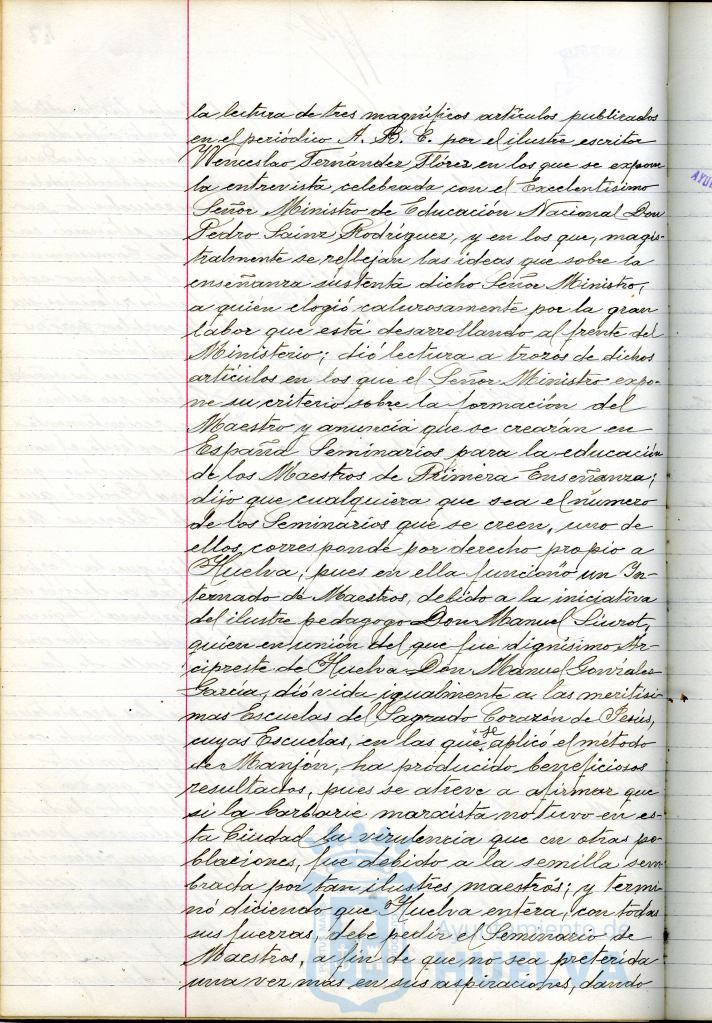 la lectura de tres magníficos artículos publicados
en el periódico A. B. C. por el ilustre escritor
Wenceslao Fernández Flórez en los que se expone
la entrevista celebrada con el Excelentísimo
Señor Ministro de Educación Nacional Don
Pedro Sáinz Rodríguez, y en los que, magis-
tralmente se reflejan las ideas que sobre la
enseñanza sustenta dicho Señor Ministro,
a quién elogió calurosamente por la gran
labor que está desarrollando al frente del
Ministerio; dió lectura a trozos de dichos
artículos en los que el Señor Ministro expo-
ne su criterio sobre la formación del
Maestro y anuncia que se crearán en
España Seminarios para la educación
de los Maestros de Primera Enseñanza;
dijo que cualquiera que sea el número
de los Seminarios que se creen, uno de
ellos corresponde por derecho propio a
Huelva, pues en ella funcionó un In-
ternado de Maestros, debido a la iniciativa
del ilustre pedagogo Don Manuel Siurot,
quien en unión del que fué dignísimo Ar-
cipreste de Huelva Don Manuel González
García, dió vida igualmente a las meritísi-
mas Escuelas del Sagrado Corazón de Jesús,
cuyas Escuelas, en las que se aplicó el método
de Manjón, ha producido beneficiosos
resultados, pues se atreve a afirmar que
si la barbarie marxista no tuvo en es-
ta Ciudad la virulencia que en otras po-
blaciones, fué debido a la semilla sem-
brada por tan ilustres maestros; y termi-
nó diciendo que Huelva entera, con todas
sus fuerzas, debe pedir el Seminario de
Maestros, a fin de que no sea preterida
una vez más en sus aspiraciones, dando
Ayuntamiento de
HUELVA
AYU